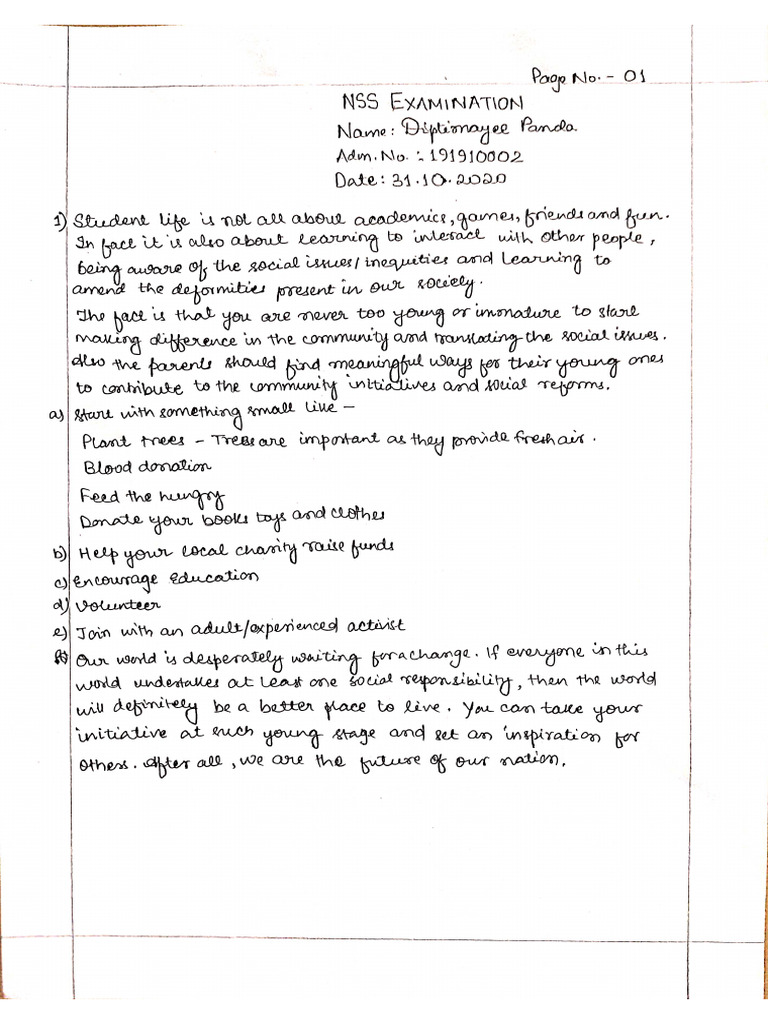 Page No. - 01
NSS EXAMINATION
Name: Diptimayee Panda
Adm. No. : 191910002
Date: 31.10.2020
1) Student life is not all about academics, games, friends and fun.
In fact it is also about learning to interact with other people,
being aware of the social issues/inequities and learning to
amend the deformities present in our society.
The fact is that you are never too young or immature to start
making difference in the community and translating the social issues.
Also the parents should find meaningful ways for their young ones
to contribute to the community initiatives and social reforms.
a) Start with something small like —
Plant trees - Trees are important as they provide fresh air.
Blood donation
Feed the hungry
Donate your books toys and clothes
b) Help your local charity raise funds
c) Encourage Education
d) Volunteer
e) Join with an adult/experienced activist
Our world is desperately waiting for a change. If everyone in this
world undertakes at least one social responsibility, then the world
will definitely be a better place to live. You can take your
initiative at such young stage and set an inspiration for
others. After all, we are the future of our nation.